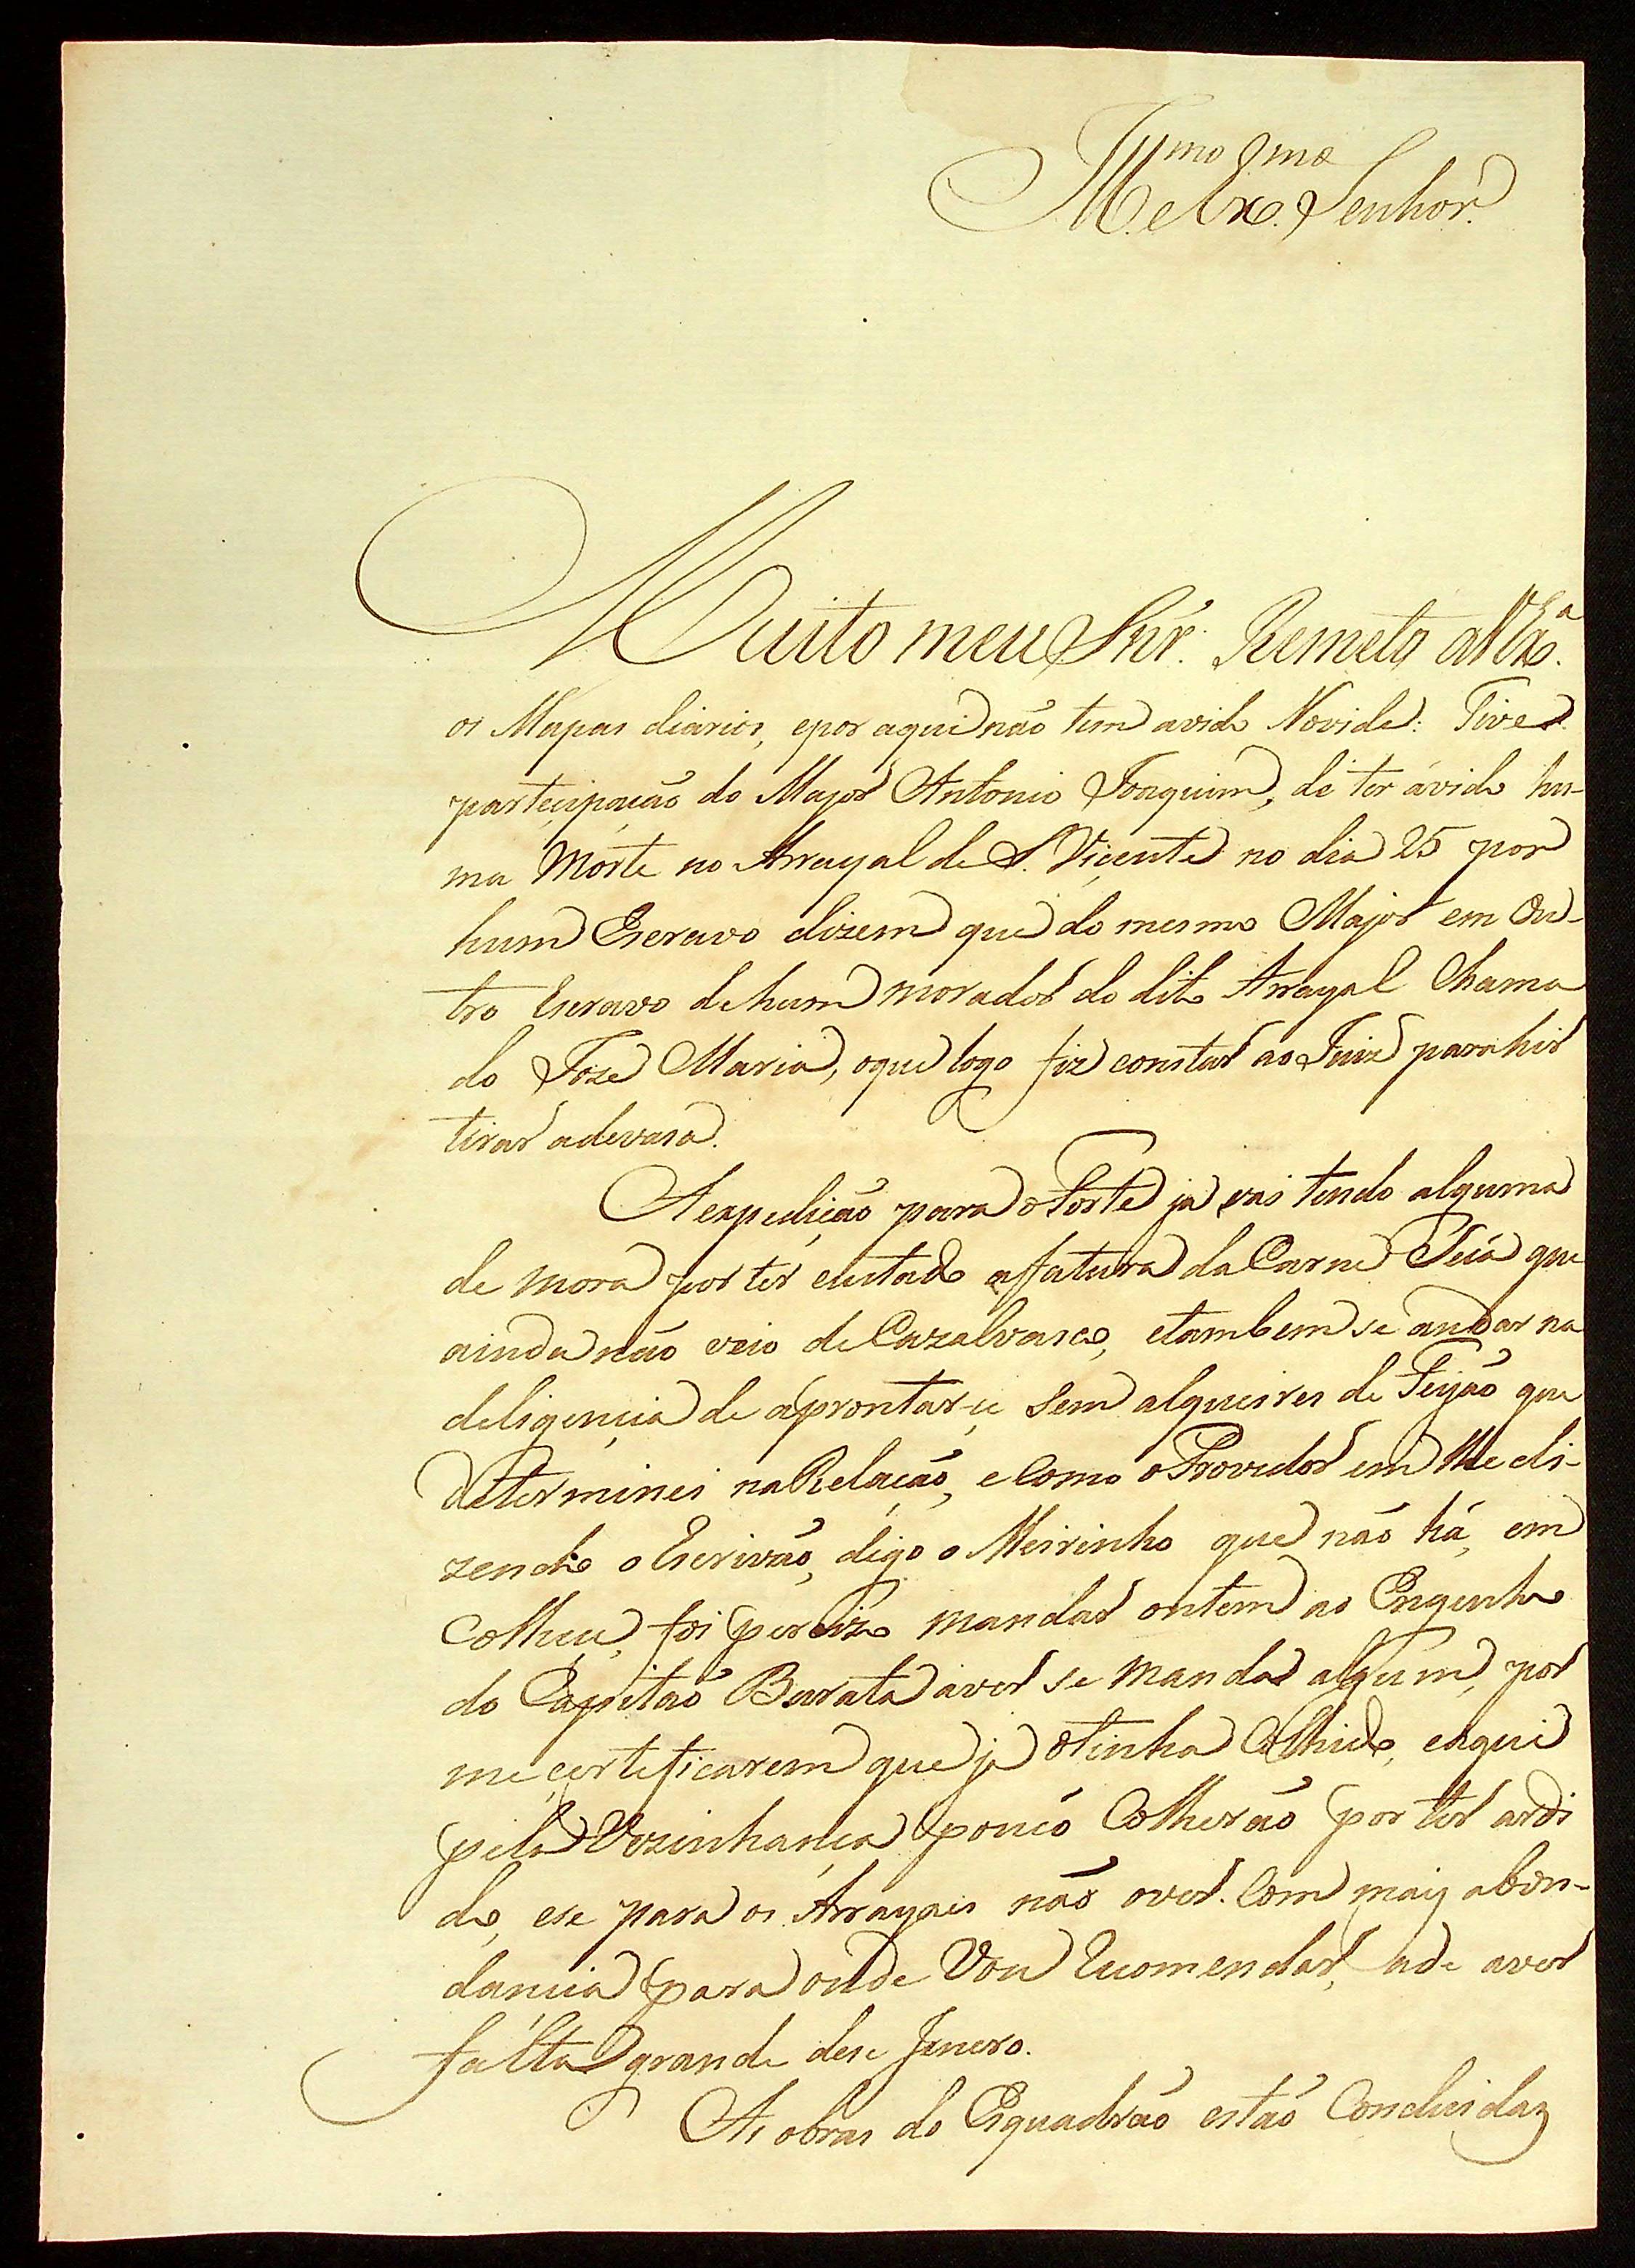 Ill.mo e Ex.mo Senhor.
Muito meu Snr. Remeto a V Ex.a
os Mapas diarios, epor aqui não tem avido Novide: Tive
partecipação do Major Antonio Joaquim, de ter avido hu-
ma Morte no Arrayal de S. Vicente no dia 25 por
hum Escravo dizem que do mesmo Major em Ou-
tro Escravo de hum morador do dito Arrayal Chama
do Joze Maria, oque logo fiz constar ao Juiz para hir
tirar adevasa.
A expedição para o Forte já vai tendo alguma
de mora por ter custado affatura da Carne Seca que
ainda não veio de Cazalvasco, etambem se andar na
deligencia de aprontar-çe Sem alqueires de Feijão que
determinei na Relação, e Como o Provedor em Me di-
zendo o Escrivão, digo o Meirinho que não há, em
Colheu, foi percizo mandar ontem ao Engenho
do Capitão Barata aver se Manda algum, por
me certeficarem que já o tinha Colhido, eaqui
pela Vezinhança pouco Colherão por ter ardi
do, ese para os Arrayais não over Com mais abon-
dancia para onde Vou Encomendar, ade aver
falta grande dese Jenero.
As obras do Esquadrão estão Concluidas